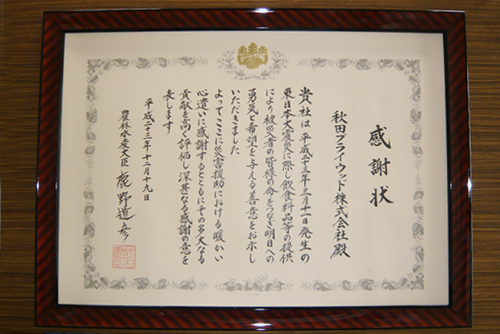 感謝状
秋田プライウッド株式会社殿
貴社は平成二十三年三月十一日発生の
東日本大震災に際し飲食料品等の提供
により被災者の皆様の命をつなぎ明日への
勇気と希望を与える善意をお示し
いただきました
よってここに災害援助における暖かい
心遣いに感謝するとともにその多大なる
貢献を高く評価し深甚なる感謝の意を
表します
平成二十三年十二月十九日
農林水産大臣 鹿野道彦